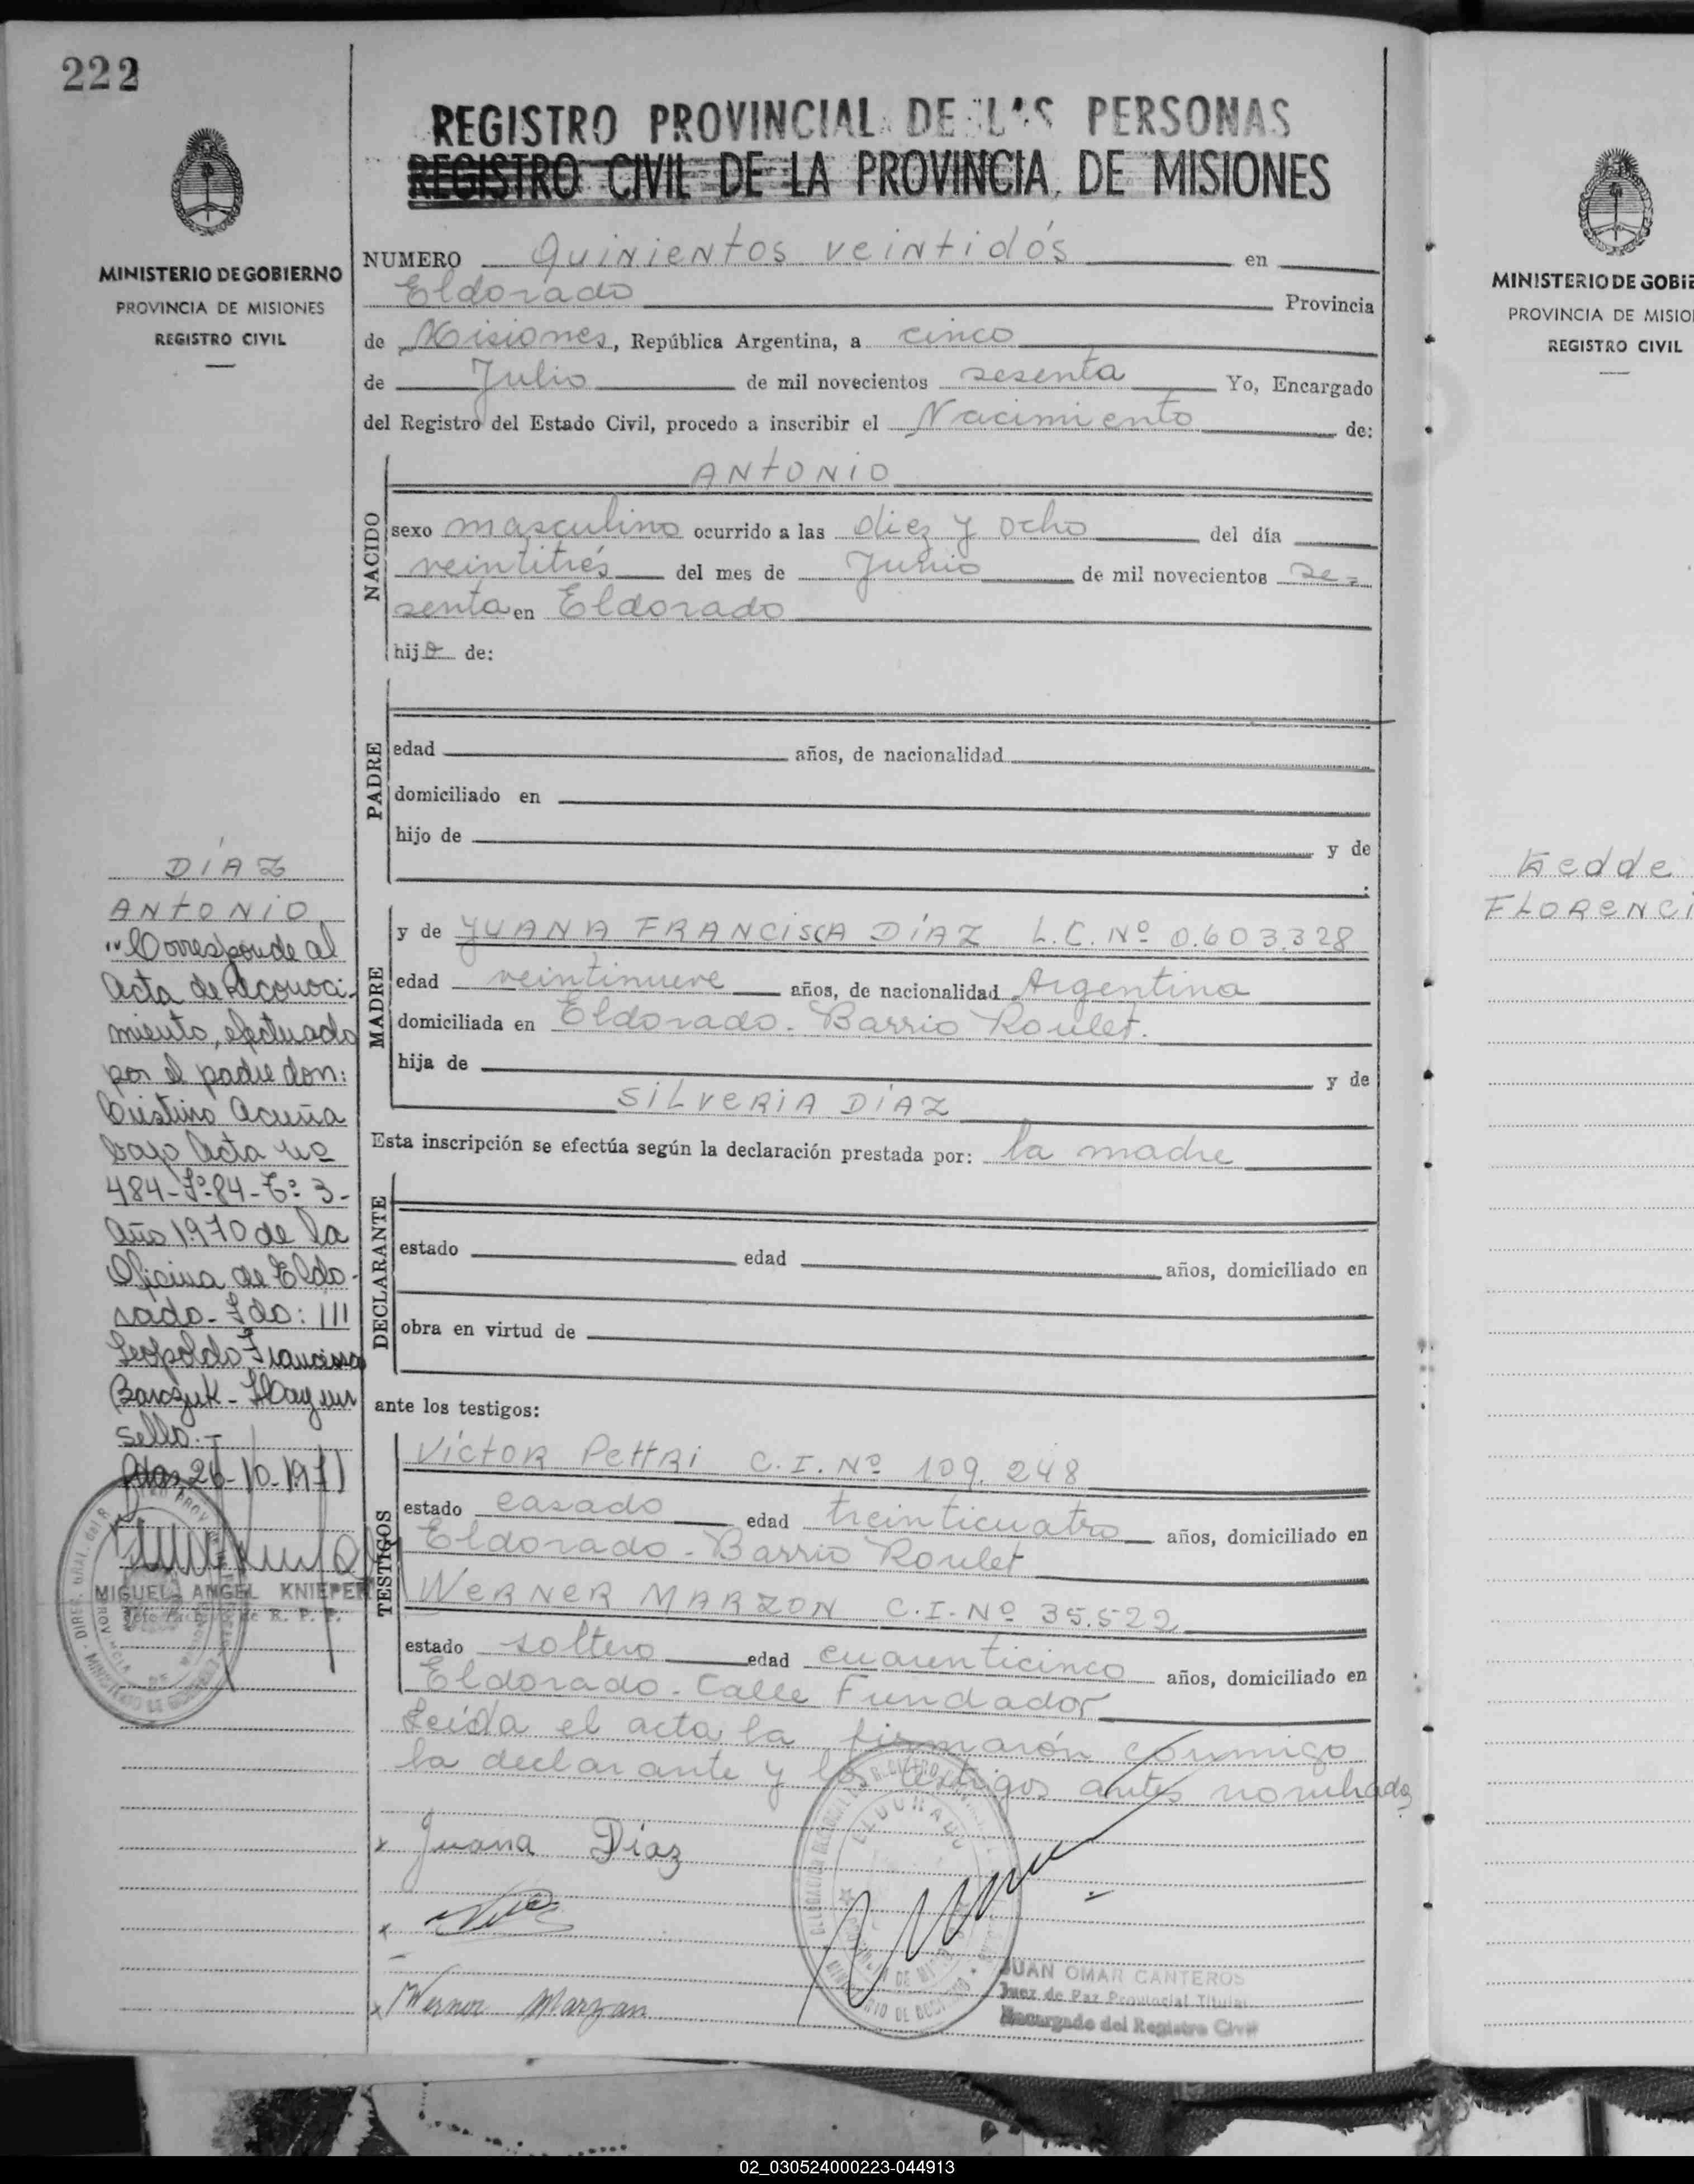 222
MINISTERIO DE GOBIERNO
PROVINCIA DE MISIONES
REGISTRO CIVIL
REGISTRO PROVINCIAL DE LAS PERSONAS
REGISTRO CIVIL DE LA PROVINCIA DE MISIONES
NUMERO Quinientos veintidós en
Eldorado Provincia
de Misiones, República Argentina, a cinco
de Julio de mil novecientos sesenta Yo, Encargado
del Registro del Estado Civil, procedo a inscribir el Nacimiento de:
NACIDO
ANTONIO
sexo masculino ocurrido a las diez y ocho del día
veintitrés del mes de Junio de mil novecientos se=
senta en Eldorado
hijo de:
PADRE
edad años, de nacionalidad
domiciliado en
hijo de y de
:
MADRE
y de JUANA FRANCISCA DÍAZ L.C. Nº 0.603.328
edad veintinueve años, de nacionalidad Argentina
domiciliada en Eldorado. Barrio Roulet.
hija de y de
SILVERIA DÍAZ
Esta inscripción se efectúa según la declaración prestada por: la madre
DECLARANTE
estado edad años, domiciliado en
obra en virtud de
ante los testigos:
TESTIGOS
VÍCTOR PETTRI C.I. Nº 109.248
estado casado edad treinticuatro años, domiciliado en
Eldorado - Barrio Roulet
WERNER MARZON C.I. Nº 35.522
estado soltero edad cuarenticinco años, domiciliado en
Eldorado - Calle Fundador
Leída el acta la firmarón conmigo
la declarante y los testigos antes nombrados
x Juana Díaz
x
x Werner Marzon
JUAN OMAR CANTEROS
Juez de Paz Provincial Titular
Encargado del Registro Civil
DÍAZ
ANTONIO
"Corresponde al
Acta de Reconoci-
miento, efectuado
por el padre don:
Cristino Acuña
bajo Acta nº
484-Fº84-Tº 3-
Año 1970 de la
Oficina de Eldo-
rado- Fdo: III
Leopoldo Francisco
Barczuk - Hay un
sello.-
Pdas, 26-10-1971
MIGUEL ANGEL KNIEPER
MINISTERIO DE GOBIE
PROVINCIA DE MISIO
REGISTRO CIVIL
Kedde
FLORENCI
02_030524000223-044913